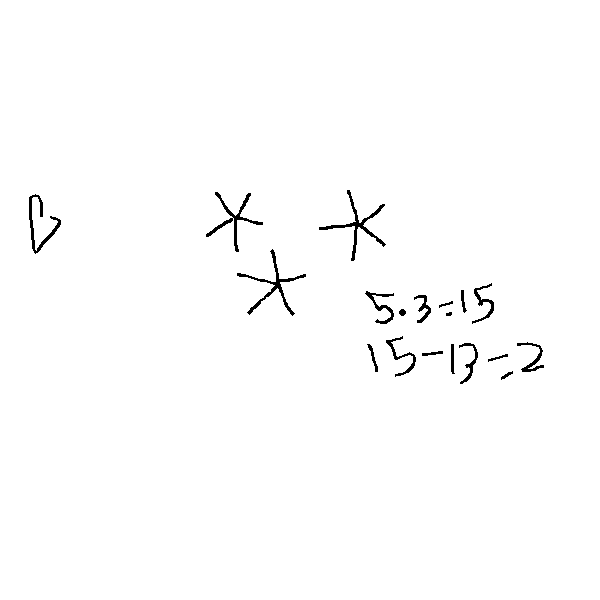 5·3=15
15-13=2